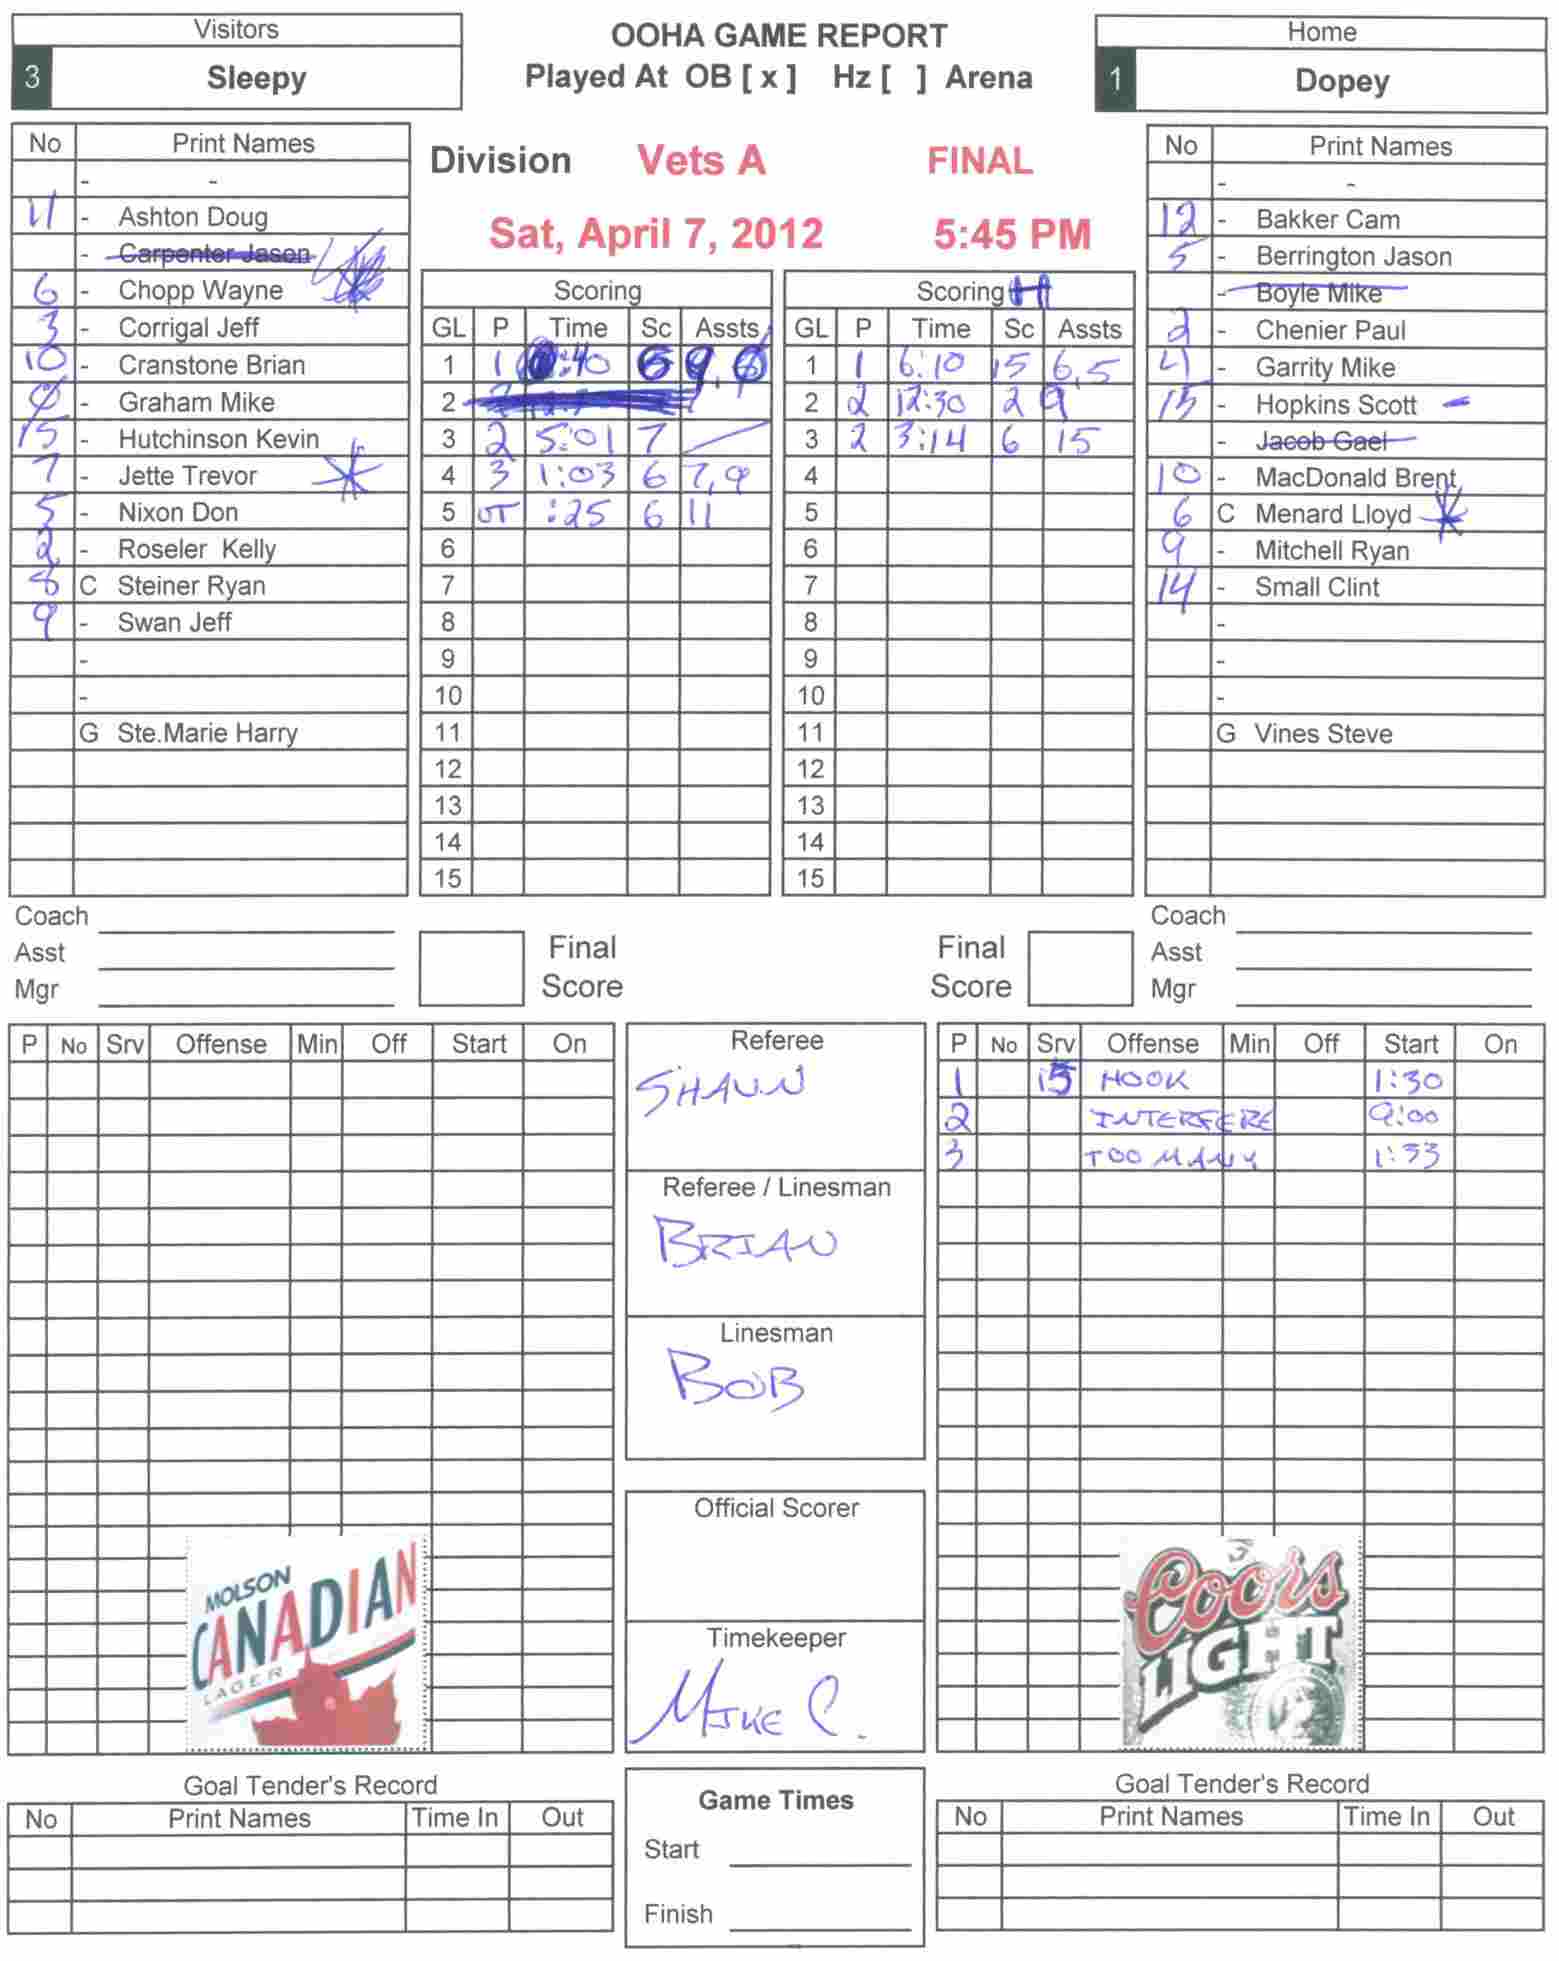 Visitors
3 Sleepy
OOHA GAME REPORT
Played At OB [ x ] Hz [ ] Arena
Home
1 Dopey
Division Vets A FINAL
Sat, April 7, 2012 5:45 PM
No Print Names
- -
11 - Ashton Doug
- Carpenter Jason
6 - Chopp Wayne
3 - Corrigal Jeff
10 - Cranstone Brian
- Graham Mike
15 - Hutchinson Kevin
7 - Jette Trevor
5 - Nixon Don
2 - Roseler Kelly
8 C Steiner Ryan
9 - Swan Jeff
-
-
G Ste.Marie Harry
Scoring
GL P Time Sc Assts
1 1 :40 6 9,
2
3 2 5:01 7
4 3 1:03 6 7,9
5 OT :25 6 11
6
7
8
9
10
11
12
13
14
15
Scoring H
GL P Time Sc Assts
1 1 6:10 15 6,5
2 2 12:30 2 9
3 2 3:14 6 15
4
5
6
7
8
9
10
11
12
13
14
15
No Print Names
- -
12 - Bakker Cam
5 - Berrington Jason
- Boyle Mike
2 - Chenier Paul
4 - Garrity Mike
15 - Hopkins Scott
- Jacob Gael
10 - MacDonald Brent
6 C Menard Lloyd
9 - Mitchell Ryan
14 - Small Clint
-
-
-
G Vines Steve
Coach
Asst
Mgr
Final
Score
Final
Score
Coach
Asst
Mgr
P No Srv Offense Min Off Start On
Referee
SHAUN
Referee / Linesman
BRIAN
Linesman
BOB
Official Scorer
Timekeeper
MIKE C.
P No Srv Offense Min Off Start On
1 15 HOOK 1:30
2 INTERFERE 9:00
3 TOO MANY 1:33
MOLSON
CANADIAN
LAGER
Coors
LIGHT
Goal Tender's Record
No Print Names Time In Out
Game Times
Start
Finish
Goal Tender's Record
No Print Names Time In Out